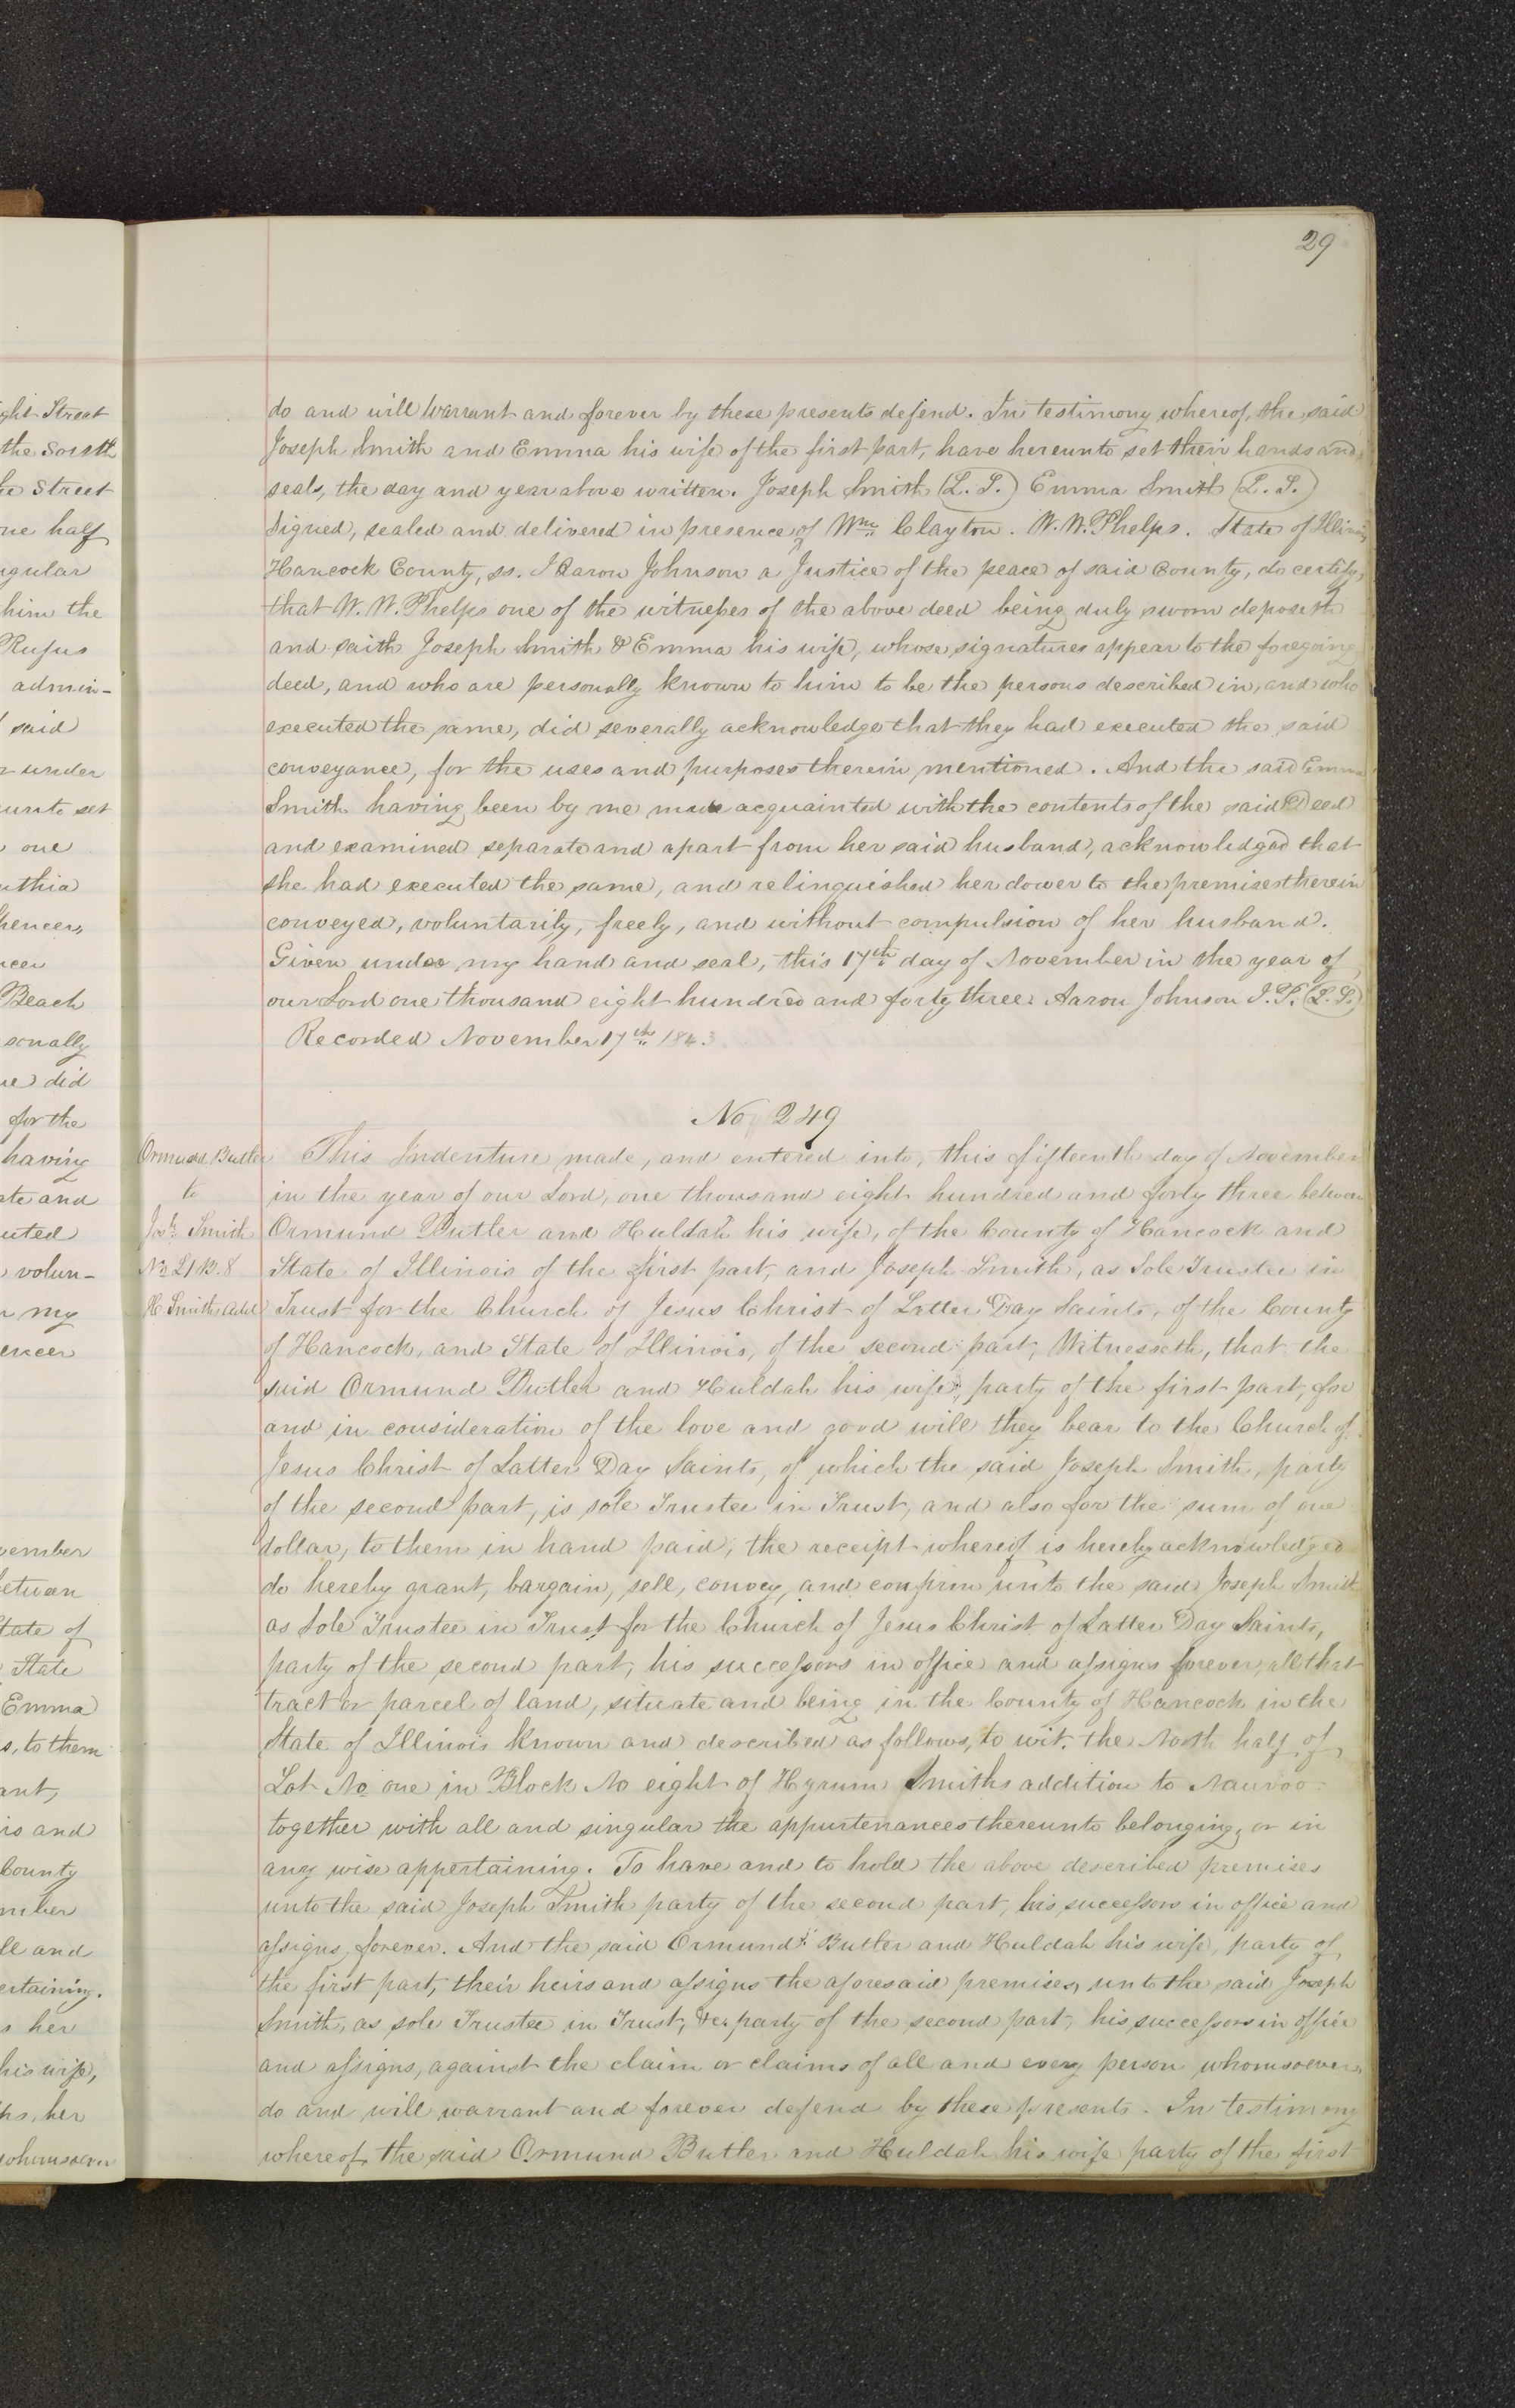 29
ght Street
the South
he Street
one half
ngular
him the
Rufus
admin-
said
r under
unto set
one
nthia
pencer,
ncer
Beach
sonally
re did
for the
having
ate and
uted
volun-
r my
encer
vember
between
State of
State
Emma
s, to them
ant,
irs and
County
mber
ll and
ertaining.
s her
his wife,
irs, her
whomsoever
do and will Warrant and forever by these presents defend. In testimony whereof, the said
Joseph Smith and Emma his wife of the first part, have hereunto set their hands and
seals, the day and year above written. Joseph Smith (L. S.) Emma Smith (L. S.)
Signed, sealed and delivered in presence of Wm Clayton. W. W. Phelps. State of Illinois
Hancock County, ss. I Aaron Johnson a Justice of the peace of said County, do certify,
that W. W. Phelps one of the witnesses of the above deed being duly sworn deposeth
and saith Joseph Smith & Emma his wife, whose signatures appear to the foregoing
deed, and who are personally known to him to be the persons described in, and who
executed the same, did severally acknowledge that they had executed the said
conveyance, for the uses and purposes therein mentioned. And the said Emma
Smith having been by me made acquainted with the contents of the said Deed
and examined separate and apart from her said husband, acknowledged that
she had executed the same, and relinquished her dower to the premises therein
conveyed, voluntarily, freely, and without compulsion of her husband.
Given under my hand and seal, this 17th day of November in the year of
our Lord one thousand eight hundred and forty three. Aaron Johnson J. P. (L. S.)
Recorded November 17th 1843.
No 249
Ormund Butler
to
Jos. Smith
No 21 B. 8
H. Smith add
This Indenture made, and entered into, this fifteenth day of November
in the year of our Lord, one thousand eight hundred and forty three between
Ormund Butler and Huldah his wife, of the County of Hancock and
State of Illinois of the first part, and Joseph Smith, as Sole Trustee in
Trust for the Church of Jesus Christ of Latter Day Saints, of the County
of Hancock, and State of Illinois, of the second part, Witnesseth, that the
said Ormund Butler and Huldah his wife, party of the first part, for
and in consideration of the love and good will they bear to the Church of
Jesus Christ of Latter Day Saints, of which the said Joseph Smith, party
of the second part, is sole Trustee in Trust, and also for the sum of one
dollar, to them in hand paid, the receipt whereof is hereby acknowledged
do hereby grant, bargain, sell, convey, and confirm unto the said Joseph Smith
as Sole Trustee in Trust for the Church of Jesus Christ of Latter Day Saints,
party of the second part, his successors in office and assigns forever, all that
tract or parcel of land, situate and being in the County of Hancock in the
State of Illinois known and described as follows, to wit. the North half of
Lot No one in Block No eight of Hyrum Smiths addition to Nauvoo
together with all and singular the appurtenances thereunto belonging, or in
any wise appertaining. To have and to hold the above described premises
unto the said Joseph Smith party of the second part, his successors in office and
assigns, forever. And the said Ormund Butler and Huldah his wife, party of
the first part, their heirs and assigns the aforesaid premises, unto the said Joseph
Smith, as sole Trustee in Trust, &c. party of the second part, his successors in office
and assigns, against the claim or claims of all and every person whomsoever,
do and will warrant and forever defend by these presents. In testimony
whereof, the said Ormund Butler and Huldah his wife party of the first